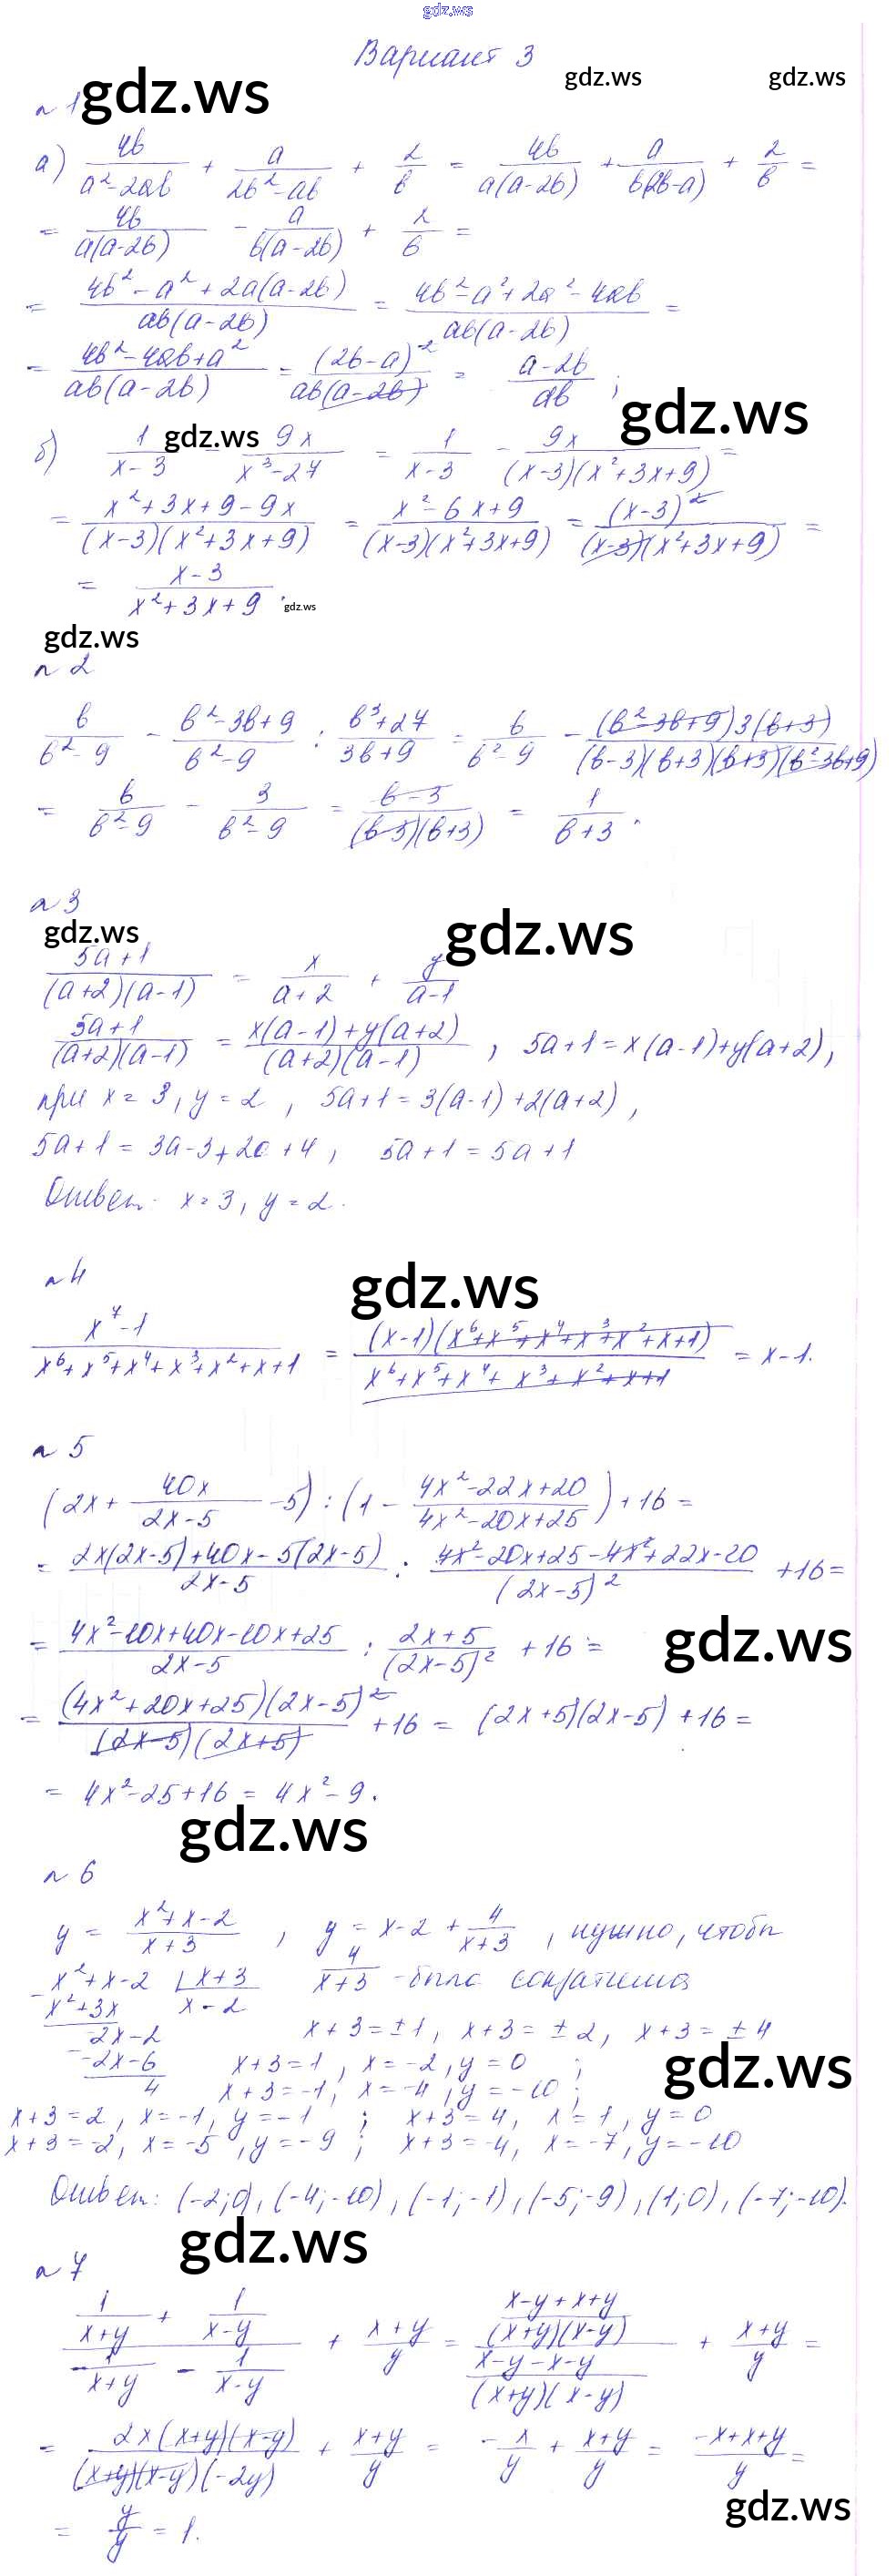 gdz.ws
Вариант 3
gdz.ws gdz.ws gdz.ws
n 1
а) 4b/(a²-2ab) + a/(2b²-ab) + 2/b = 4b/(a(a-2b)) + a/(b(2b-a)) + 2/b =
= 4b/(a(a-2b)) - a/(b(a-2b)) + 2/b =
= (4b²-a²+2a(a-2b))/(ab(a-2b)) = (4b²-a²+2a²-4ab)/(ab(a-2b)) =
= (4b²-4ab+a²)/(ab(a-2b)) = (2b-a)²/(ab(a-2b)) = (a-2b)/(ab) ;
gdz.ws
gdz.ws
б) 1/(x-3) - 9x/(x³-27) = 1/(x-3) - 9x/((x-3)(x²+3x+9)) =
= (x²+3x+9-9x)/((x-3)(x²+3x+9)) = (x²-6x+9)/((x-3)(x²+3x+9)) = (x-3)²/((x-3)(x²+3x+9)) =
= (x-3)/(x²+3x+9) .
gdz.ws
gdz.ws
n 2
b/(b²-9) - (b²-3b+9)/(b²-9) : (b³+27)/(3b+9) = b/(b²-9) - ((b²-3b+9)3(b+3))/((b-3)(b+3)(b+3)(b²-3b+9))
= b/(b²-9) - 3/(b²-9) = (b-3)/((b-3)(b+3)) = 1/(b+3) .
n 3
gdz.ws gdz.ws
(5a+1)/((a+2)(a-1)) = x/(a+2) + y/(a-1)
(5a+1)/((a+2)(a-1)) = (x(a-1)+y(a+2))/((a+2)(a-1)) , 5a+1=x(a-1)+y(a+2),
при x=3, y=2, 5a+1=3(a-1)+2(a+2),
5a+1=3a-3+2a+4, 5a+1=5a+1
Ответ: x=3, y=2.
n 4
gdz.ws
(x⁷-1)/(x⁶+x⁵+x⁴+x³+x²+x+1) = ((x-1)(x⁶+x⁵+x⁴+x³+x²+x+1))/(x⁶+x⁵+x⁴+x³+x²+x+1) = x-1.
n 5
(2x + 40x/(2x-5) - 5) : (1 - (4x²-22x+20)/(4x²-20x+25)) + 16 =
= (2x(2x-5)+40x-5(2x-5))/(2x-5) : (4x²-20x+25-4x²+22x-20)/(2x-5)² + 16 =
= (4x²-10x+40x-10x+25)/(2x-5) : (2x+5)/(2x-5)² + 16 =
gdz.ws
= ((4x²+20x+25)(2x-5)²)/((2x-5)(2x+5)) + 16 = (2x+5)(2x-5) + 16 =
= 4x²-25+16 = 4x²-9.
gdz.ws
n 6
y = (x²+x-2)/(x+3) , y = x-2 + 4/(x+3) , нужно, чтобы
x²+x-2 | x+3 4/(x+3) - была сократима
x²+3x x-2
-2x-2 x+3=±1, x+3=±2, x+3=±4
-2x-6 x+3=1, x=-2, y=0 ;
gdz.ws
4 x+3=-1, x=-4, y=-10 ;
x+3=2, x=-1, y=-1 ; x+3=4, x=1, y=0
x+3=-2, x=-5, y=-9 ; x+3=-4, x=-7, y=-10
Ответ: (-2;0), (-4;-10), (-1;-1), (-5;-9), (1;0), (-7;-10).
gdz.ws
n 7
(1/(x+y) + 1/(x-y))/(1/(x+y) - 1/(x-y)) + (x+y)/y = ((x-y+x+y)/((x+y)(x-y)))/((x-y-x-y)/((x+y)(x-y))) + (x+y)/y =
= (2x(x+y)(x-y))/((x+y)(x-y)(-2y)) + (x+y)/y = -x/y + (x+y)/y = (-x+x+y)/y =
gdz.ws
= y/y = 1.